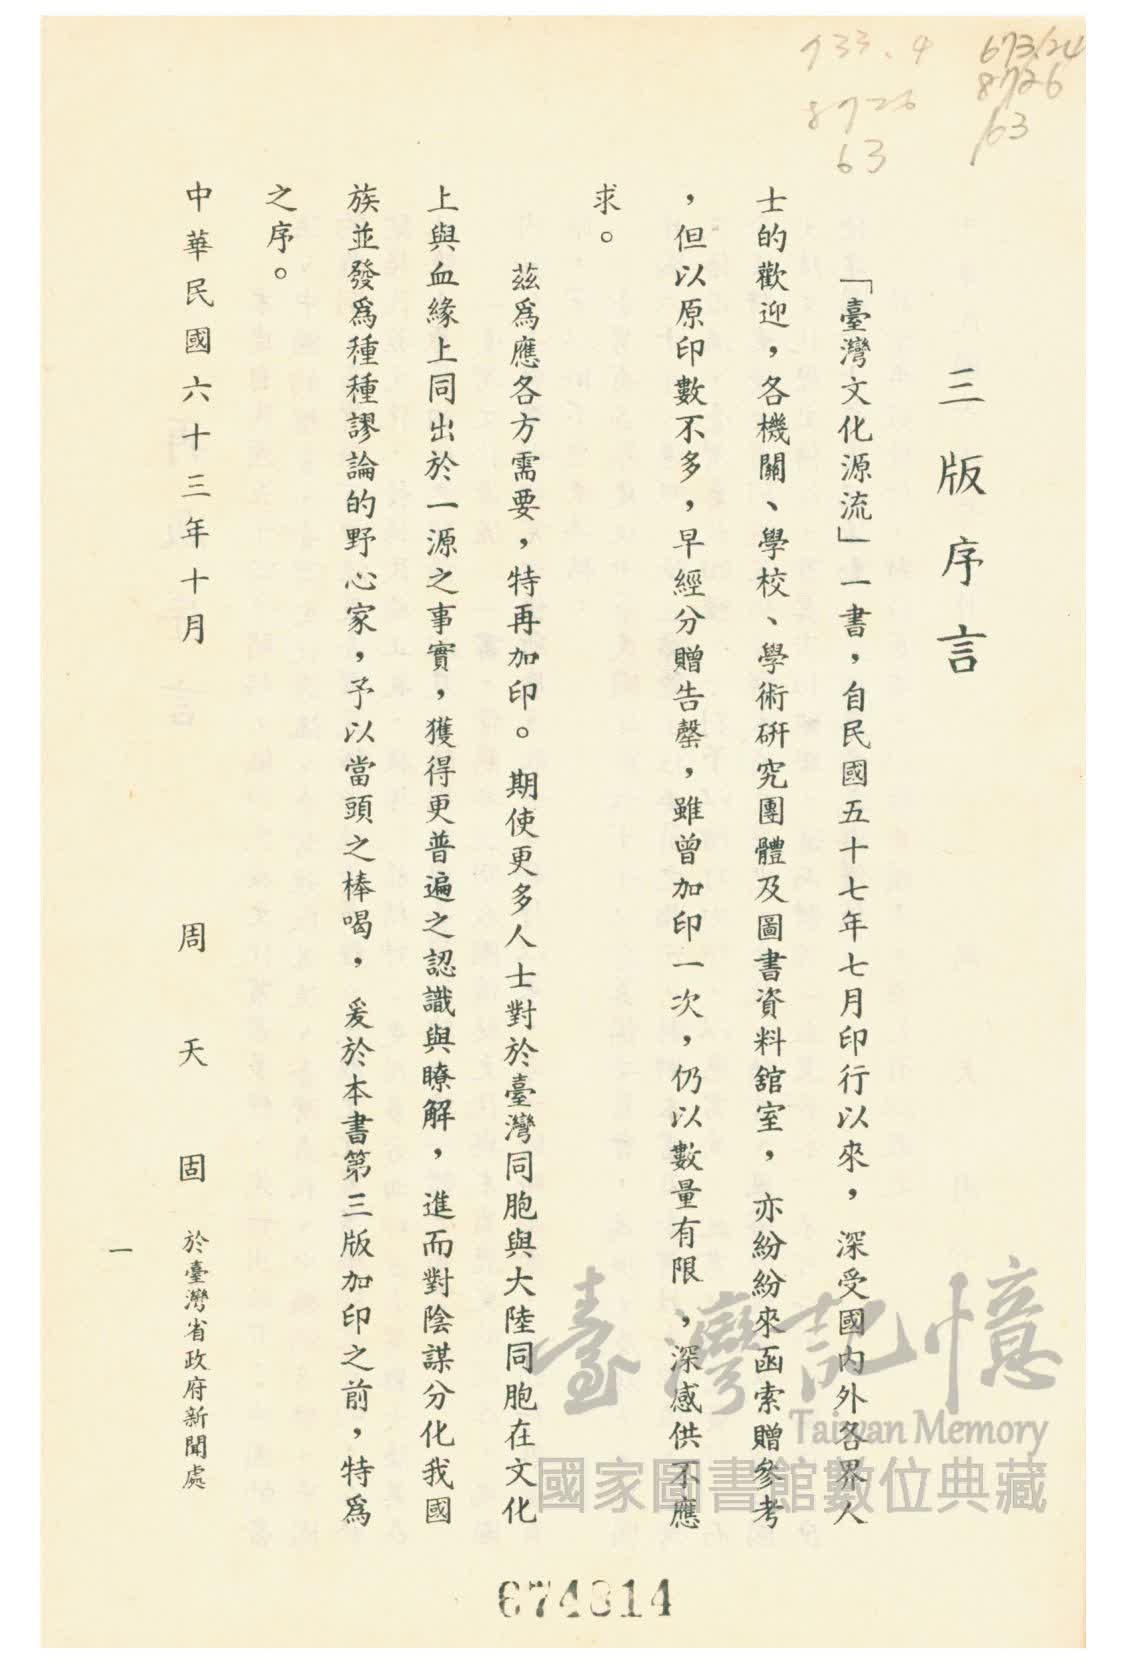 三版序言
「臺灣文化源流」一書，自民國五十七年七月印行以來，深受國內外各界人
士的歡迎，各機關、學校、學術研究團體及圖書資料舘室，亦紛紛來函索贈參考
，但以原印數不多，早經分贈告罄，雖曾加印一次，仍以數量有限，深感供不應
求。
茲為應各方需要，特再加印。期使更多人士對於臺灣同胞與大陸同胞在文化
上與血緣上同出於一源之事實，獲得更普遍之認識與瞭解，進而對陰謀分化我國
族並發為種種謬論的野心家，予以當頭之棒喝，爰於本書第三版加印之前，特為
之序。
中華民國六十三年十月 周天固 於臺灣省政府新聞處
一
933.4
8726
63
673.24
8726
63
臺灣記憶
Taiwan Memory
國家圖書館數位典藏
674814